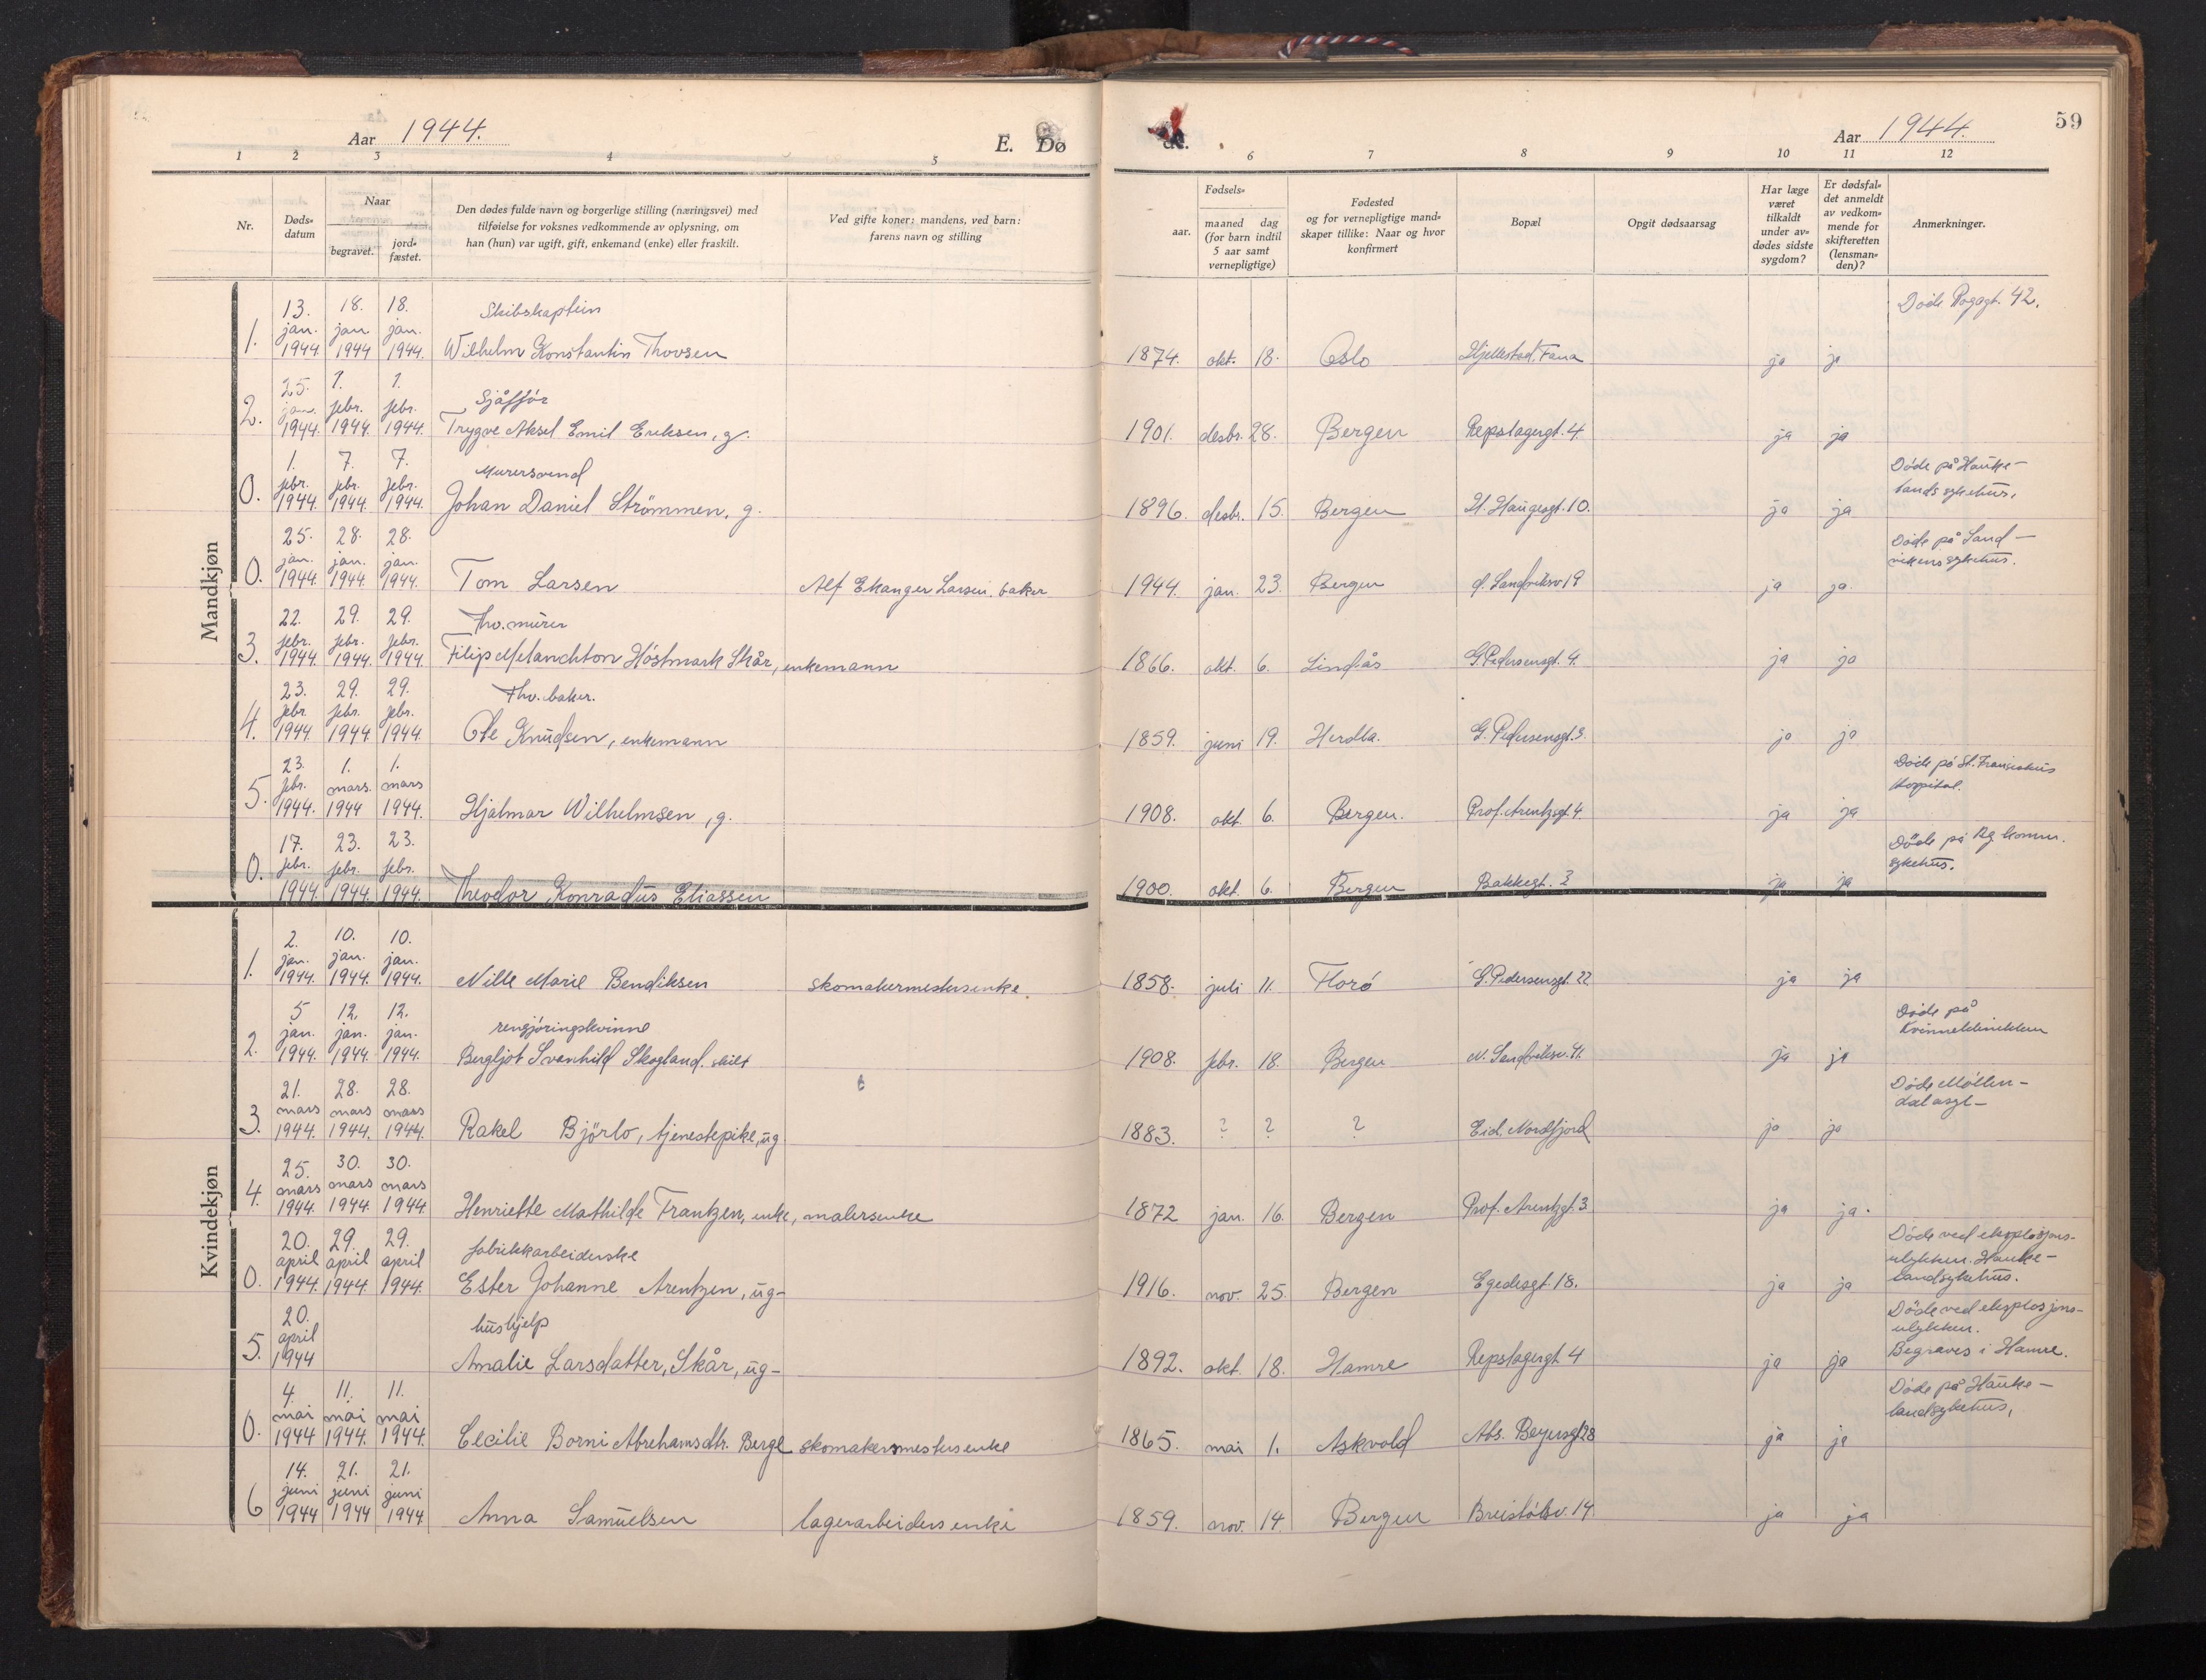 Aar 1944.
E. Dø
de.
Aar 1944.
59
1 2 3 4 5 6 7 8 9 10 11 12
Nr.
Døds-
datum
Naar
begravet.
jord-
fæstet.
Den dødes fulde navn og borgerlige stilling (næringsvei) med
tilføielse for voksnes vedkommende av oplysning, om
han (hun) var ugift, gift, enkemand (enke) eller fraskilt.
Ved gifte koner: mandens, ved barn:
farens navn og stilling
Fødsels-
aar.
maaned dag
(for barn indtil
5 aar samt
vernepligtige)
Fødested
og for vernepligtige mand-
skaper tillike: Naar og hvor
konfirmert
Bopæl
Opgit dødsaarsag
Har læge
været
tilkaldt
under av-
dødes sidste
sygdom?
Er dødsfal-
det anmeldt
av vedkom-
mende for
skifteretten
(lensman-
den)?
Anmerkninger.
Mandkjøn
13. 18. 18. Skibskaptein Døde 42.
jan. jan. jan.
1. 1944. 1944 1944. Wilhelm Konstantin Thovsen 1874. okt. 18. Oslo Hjellestad, Fana ja ja
25. 1. 1. Sjåffór
jan. febr. febr.
2. 1944. 1944. 1944. Trygve Aksel Emil Eriksen, g. 1901. desbr. 28. Bergen Repslagergt. 4 ja ja
1. 7. 7. Murersvend Døde på Hauke-
febr. febr. febr. landssykehus.
0. 1944. 1944. 1944. Johan Daniel Strömmen, g. 1896. desbr. 15. Bergen H. Haugesgt. 10. ja ja
25. 28. 28. Døde på Sand-
jan. jan. jan. vikens sykehus.
0. 1944. 1944 1944. Tom Larsen Alf Ekanger Larsen, baker 1944. jan. 23. Bergen Sandviksv 19 ja ja.
22. 29. 29. Fhv. murer
febr. febr. febr.
3. 1944. 1944. 1944 Filip Melanchton Höstmark Skår, enkemann 1866. okt. 6. Lindås G. Pedersensgt. 4. ja ja
23. 29. 29. Fhv. baker.
febr. febr. febr.
4. 1944. 1944 1944. Ole Knudsen, enkemann 1859. juni 19. Herdla. G. Pedersensgt. 3. ja ja
23. 1. 1. Døde på St. Franciskus
febr. mars. mars Hospital.
5. 1944. 1944 1944. Hjalmar Wilhelmsen, g. 1908. okt. 6. Bergen. Prof. Arentzgt. 4. ja ja
17. 23. 23. Døde på Bg. komm.
febr. febr. febr. sykehus.
0. 1944. 1944. 1944. Theodor Konradus Eliassen 1900. okt. 6. Bergen Bakkegt. 3 ja ja
Kvindekjøn
2. 10. 10.
jan. jan. jan.
1. 1944. 1944. 1944. Nille Marie Bendiksen skomakermestersenke. 1858. juli 11. Florö G. Pedersensgt. 22 ja ja
5 12. 12. rengjöringskvinne Døde på
jan. jan. jan. Kvinneklinikken
2. 1944. 1944. 1944. Bergljot Svanhild Skogland. skilt 1908. febr. 18. Bergen N. Sandviksv. 41. ja ja
21. 28. 28. Døde Möllen-
mars mars mars dal asyl-
3. 1944. 1944. 1944. Rakel Björlo, tjenestepike, ug 1883. ? ? ? Eid, Nordfjord ja ja
25. 30. 30.
mars mars mars
4. 1944. 1944. 1944 Henriette Mathilde Frantzen, enke, malersenke 1872 jan. 16. Bergen Prof. Arentzgt. 3 ja ja.
20. 29. 29. fabrikkarbeiderske Døde ved eksplosjons-
april april april ulykken. Hauke-
0. 1944. 1944. 1944. Ester Johanne Arentzen, ug- 1916. nov. 25. Bergen Egedesgt. 18. ja ja landsykehus.
20. hushjelp Døde ved eksplosjons-
april ulykken.
5. 1944 Amalie Larsdatter, Skår, ug- 1892. okt. 18. Hamre Repslagergt 4 ja ja Begraves i Hamre.
4. 11. 11. Døde på Hauke-
mai mai mai landsykehus,
0. 1944 1944. 1944. Cecilie Borni Abrehamsdtr. Berge skomakermestersenke 1865. mai 1. Askvold Abs. Beyersgt 28 ja ja
14. 21. 21.
juni juni juni
6 1944 1944 1944 Anna Samuelsen lagerarbeidersenke 1859. nov. 14. Bergen Breistölsv. 14. ja ja